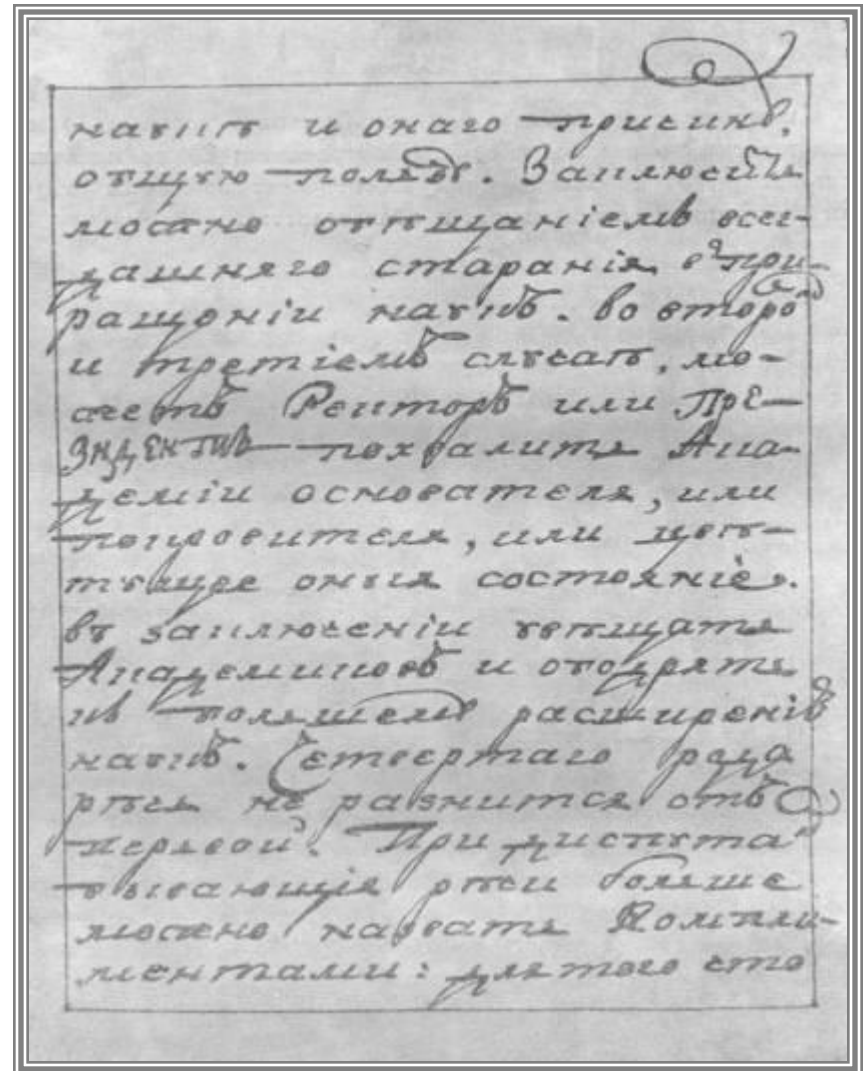 наукъ и онаго происх.
ощую ползꙋ. Заключить
можно обѣщаніемъ всег-
дашняго старанія въ при-
ращеніи наукъ. Во второ
и третіемъ случаѣ, мо-
жетъ Ректоръ или Пре-
зидентъ похвалить Ака-
деміи основателя, или
покровителя, или цвѣ-
тущее оныя состояніе.
въ заключеніи увѣщать
Академиковъ и ободрять
къ большему расширенію
наукъ. Четвертаго рода
рѣчь не разнится отъ
первой. При диспута
бывающія рѣчи больше
можно назвать Компли-
ментами: для того что